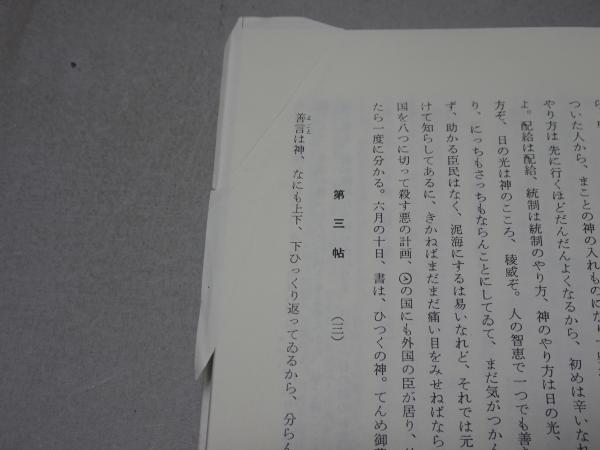 ついた人から、まことの神の入れものになり
やり方は先に行くほどだんだんよくなるから、初めは辛いなれ
よ。配給は配給、統制は統制のやり方、神のやり方は日の光、
方ぞ、日の光は神のこころ、稜威ぞ。人の智恵で一つでも善
り、にっちもさっちもならんことにしてゐて、まだ気がつかん
ず、助かる臣民はなく、泥海にするは易いなれど、それでは元
けて知らしてあるに、きかねばまだまだ痛い目をみせねばなら
国を八つに切って殺す悪の計画、の国にも外国の臣が居り、
たら一度に分かる。六月の十日、書は、ひつくの神。てんめ御
第三帖 (三)
善言は神、なにも上下、下ひっくり返ってゐるから、分らん
よごと